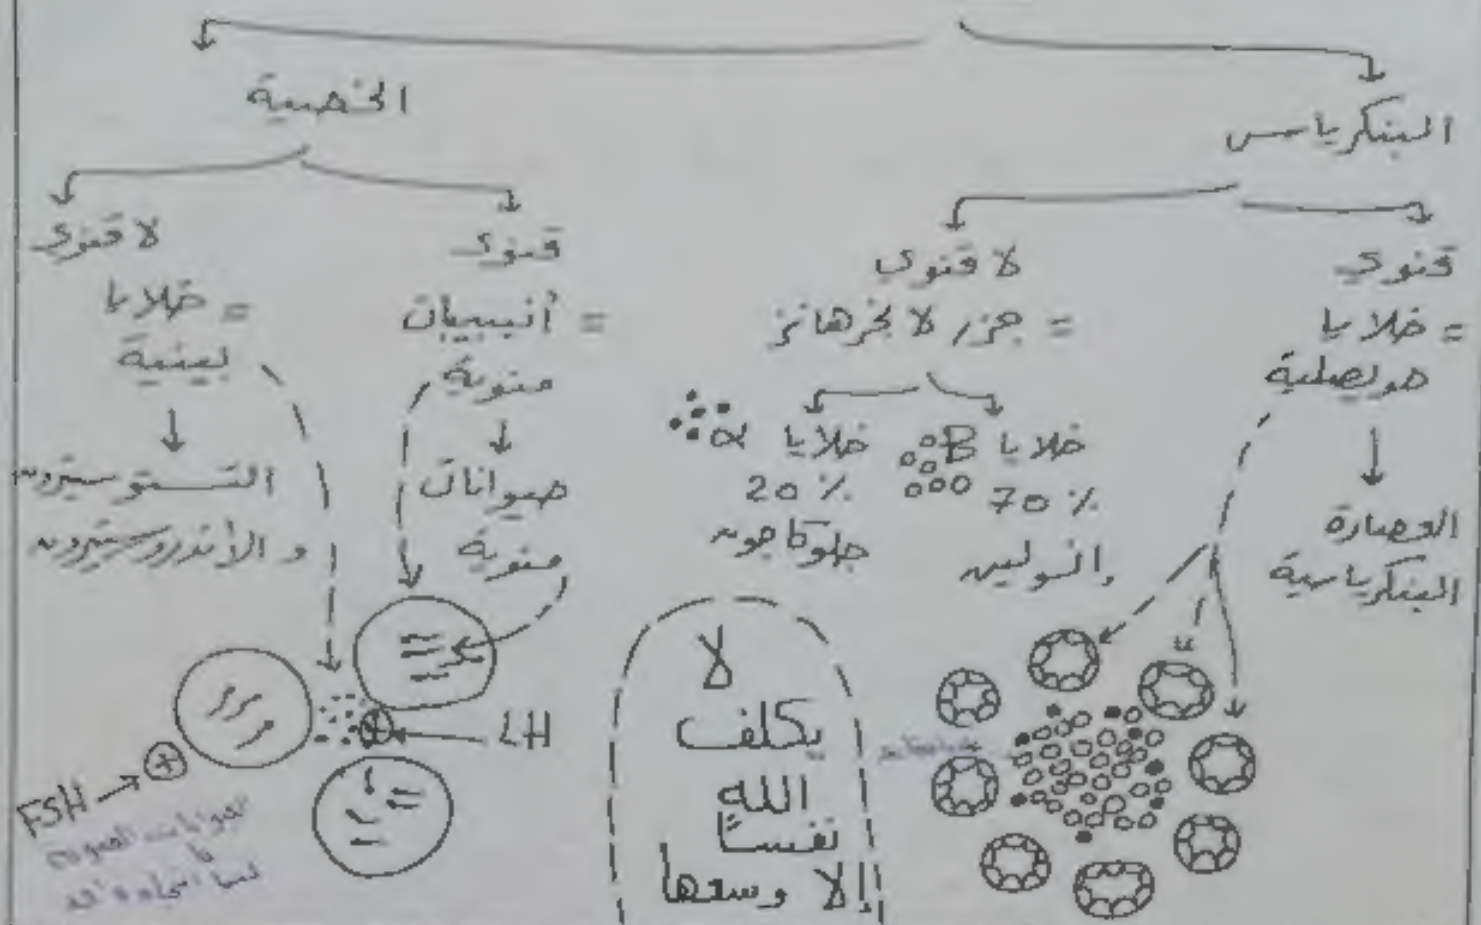 البنكرياس
قنوي
= خلايا
حويصلية
العصارة
البنكرياسية
لا قنوي
= جزر لانجرهانز
خلايا B
70 %
إنسولين
خلايا α
20 %
جلوكاجون
الخصية
قنوي
= أنيبيبات
منوية
حيوانات
منوية
لا قنوي
= خلايا
بينية
التستوستيرون
و الأندروستيرون
LH
FSH
لا
يكلف
الله
نفسًا
إلا وسعها